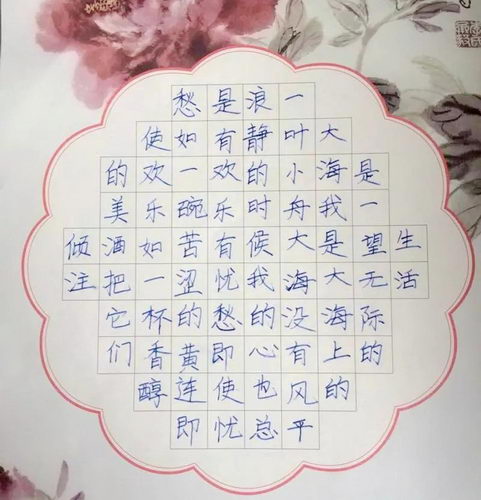 生活
是一望无际的
大海我是大海上的
一叶小舟大海没有风平
浪静的时候我的心也总
是有欢乐有忧愁即使忧
愁如一碗苦涩的黄连即
使欢乐如一杯香醇
的美酒把它们
倾注